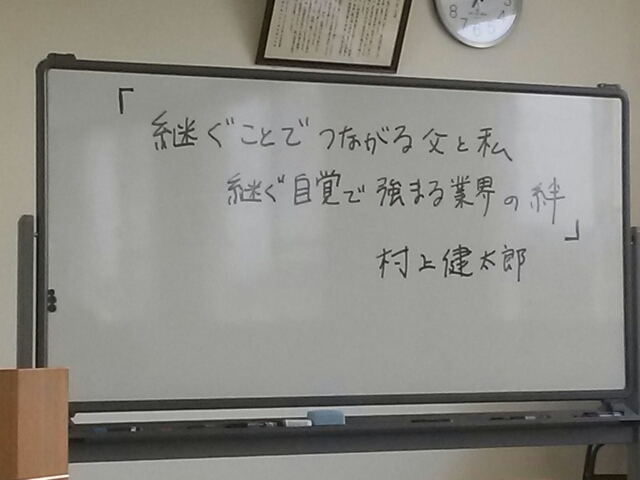 「継ぐことでつながる父と私
継ぐ自覚で強まる業界の絆」
村上健太郎